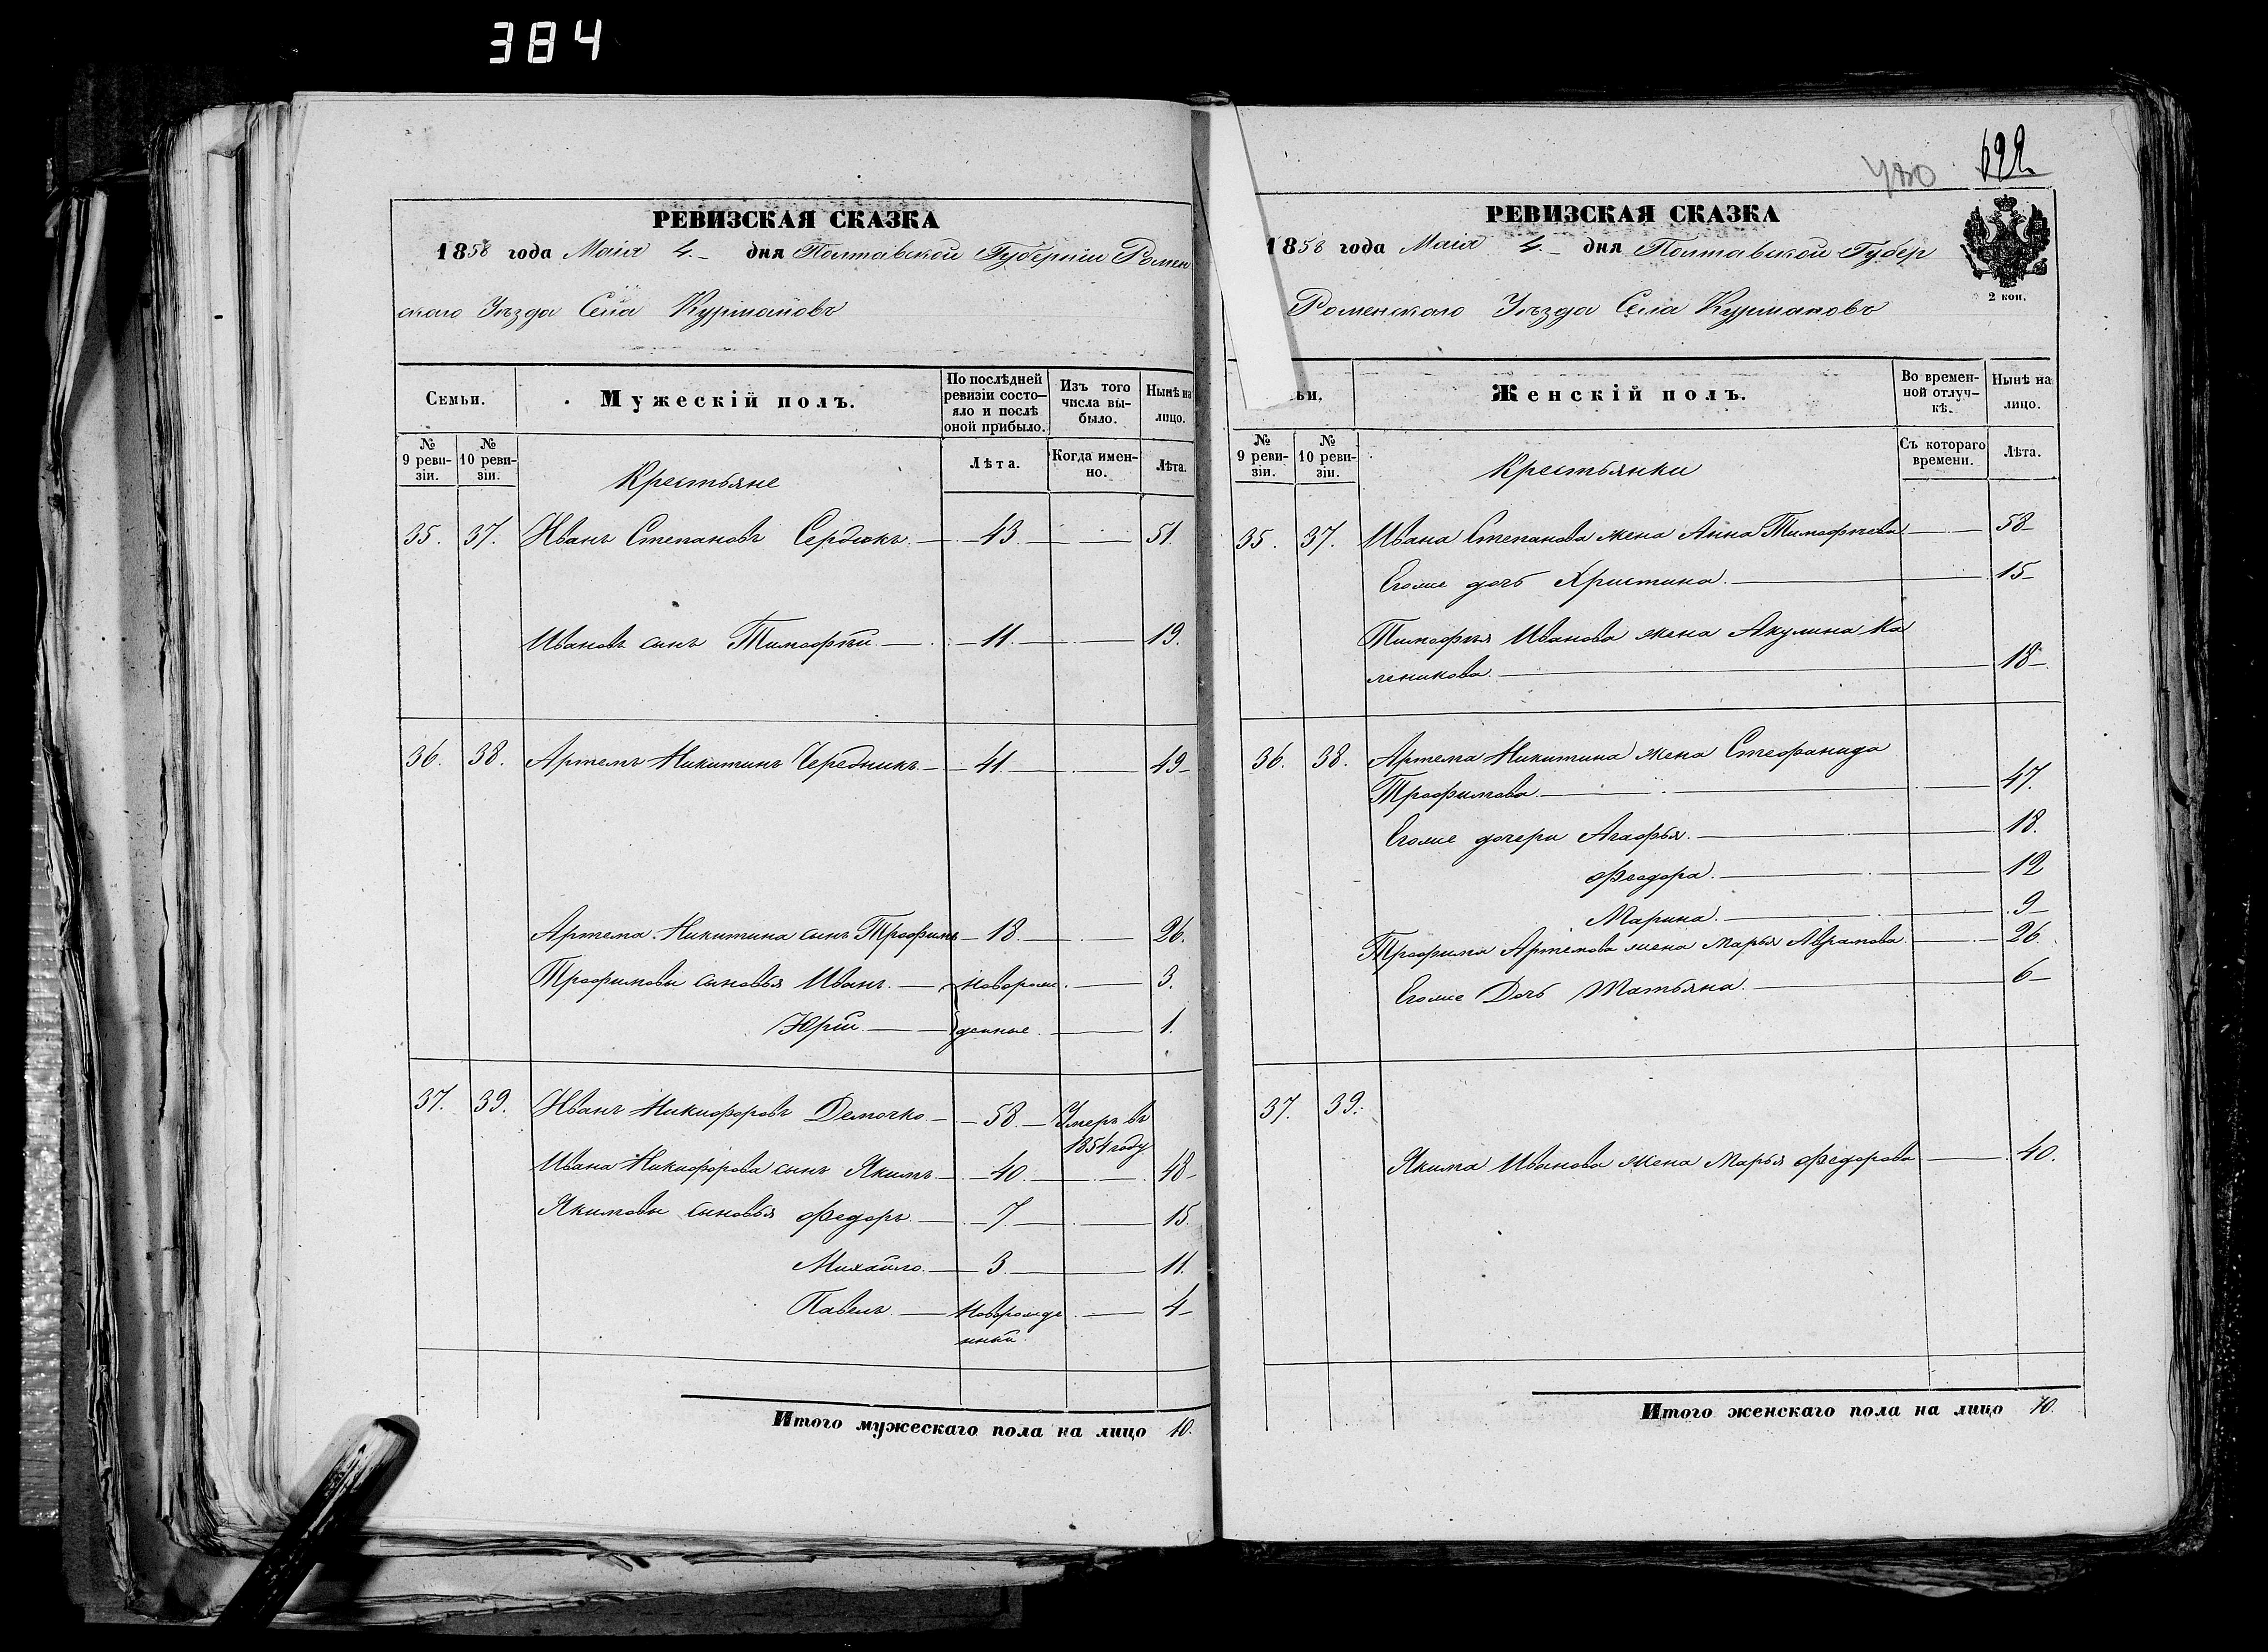 384
РЕВИЗСКАЯ СКАЗКА
1858 года Маія 4.- дня Полтавской Губерніи Ромен
скаго Уѣзда Села Курмановъ
Семьи.
Мужескій полъ.
По послѣдней ревизіи состояло и послѣ оной прибыло.
Изъ того числа выбыло.
Нынѣ на лицо.
№ 9 ревизіи.
№ 10 ревизіи.
Лѣта.
Когда именно.
Лѣта.
Крестьяне
35. 37. Иванъ Степановъ Сердюкъ. — 43. — — 51.
Ивановъ сынъ Тимофѣй. — 11. — — 19.
36. 38. Артемъ Никитинъ Чередникъ. — 41. — — 49-
Артема Никитина сынъ Трофимъ — 18. — — 26.
Трофимовы сыновья Иванъ. — новорож. — 3.
Юрій. — денные. — 1.
37. 39. Иванъ Никифоровъ Демочко. — 58. — Умеръ въ
1854 году
Ивана Никифорова сынъ Якимъ. — 40. — — 48-
Якимовы сыновья Федоръ. — 7. — — 15.
Михайло. — 3. — — 11.
Павелъ. — Новорожде — 4-
нный.
Итого мужескаго пола на лицо 10.
622
РЕВИЗСКАЯ СКАЗКА
1858 года Маія 4.- дня Полтавской Губер
Роменскаго Уѣзда Села Курмановъ
2 коп.
ьи.
Женскій полъ.
Во временной отлучкѣ.
Нынѣ на лицо.
№ 9 ревизіи.
№ 10 ревизіи.
Съ котораго времени.
Лѣта.
Крестьянки
35. 37. Ивана Степанова жена Анна Тимофѣева — 58-
Егоже дочь Христина. — 15-
Тимофѣя Иванова жена Акулина Ка
леникова. — 18-
36. 38. Артема Никитина жена Стефанида
Трофимова. — 47.
Егоже дочери Агафья. — 18.
Феодора. — 12
Марина. — 9-
Трофима Артемова жена Марья Аврамова. — 26.
Егоже Дочь Татьяна. — 6-
37. 39.
Якима Иванова жена Марья Федорова — 40.
Итого женскаго пола на лицо 10.